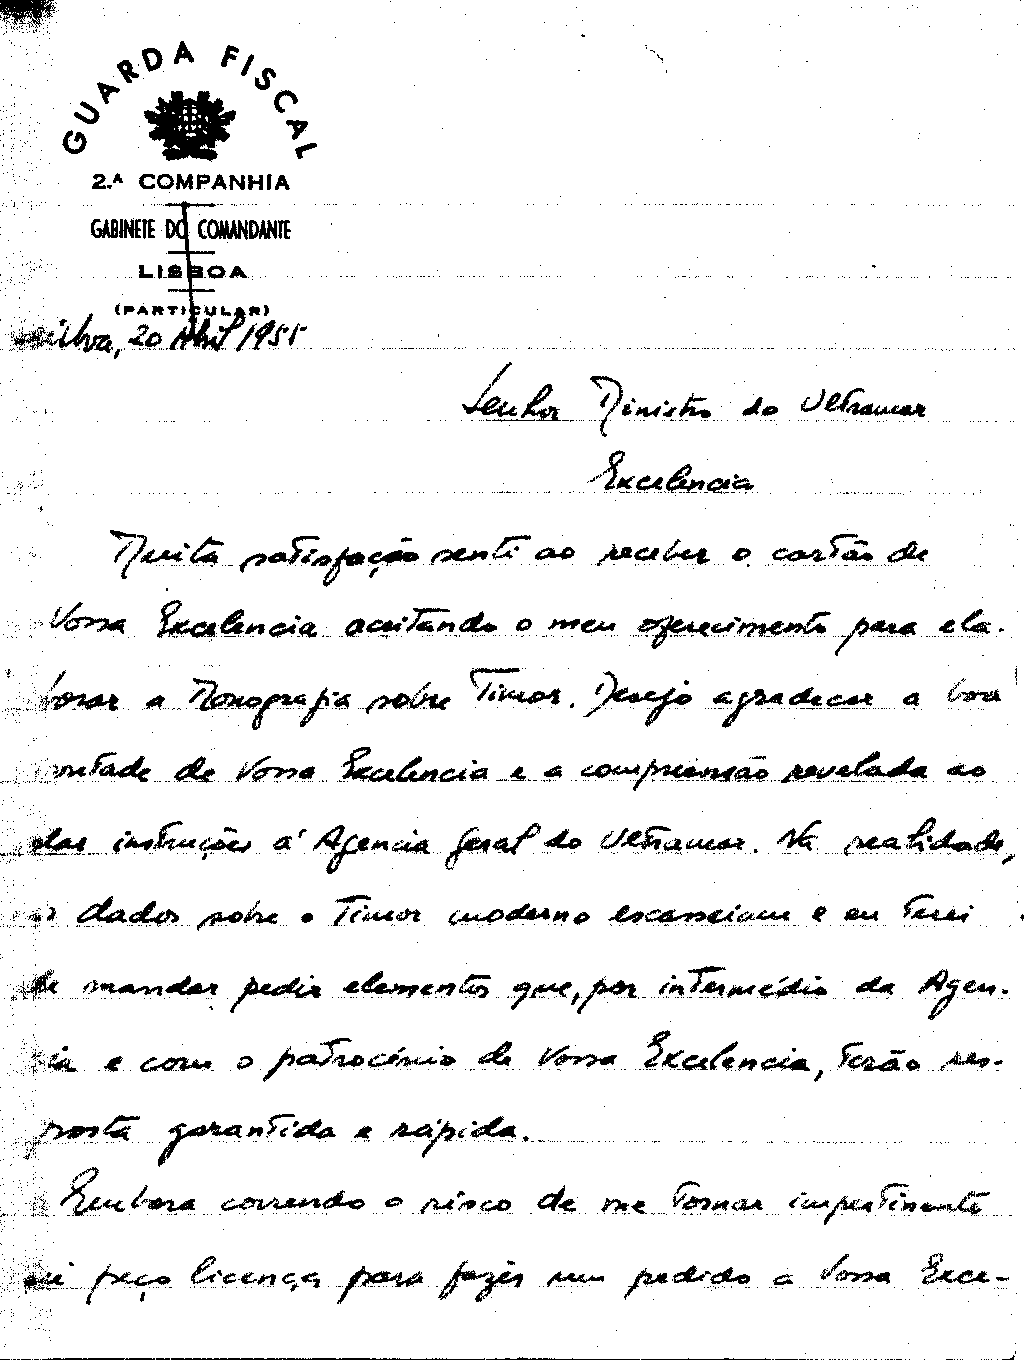 GUARDA FISCAL
2.ª COMPANHIA
GABINETE DO COMANDANTE
LISBOA
(PARTICULAR)
20 Abril 1955
Senhor Ministro do Ultramar
Excelencia
Muita satisfação senti ao receber o cartão de
Vossa Excelencia aceitando o meu oferecimento para ela-
borar a Monografia sobre Timor. Desejo agradecer a boa
vontade de Vossa Excelencia e a compreensão revelada ao
dar instruções á Agencia Geral do Ultramar. Na realidade,
os dados sobre o Timor moderno escasseiam e eu terei
de mandar pedir elementos que, por intermédio da Agen-
cia e com o patrocénio de Vossa Excelencia, terão res-
posta garantida e rápida.
Embora correndo o risco de me tornar impertinente
eu peço licença para fazer um pedido a Vossa Exce-